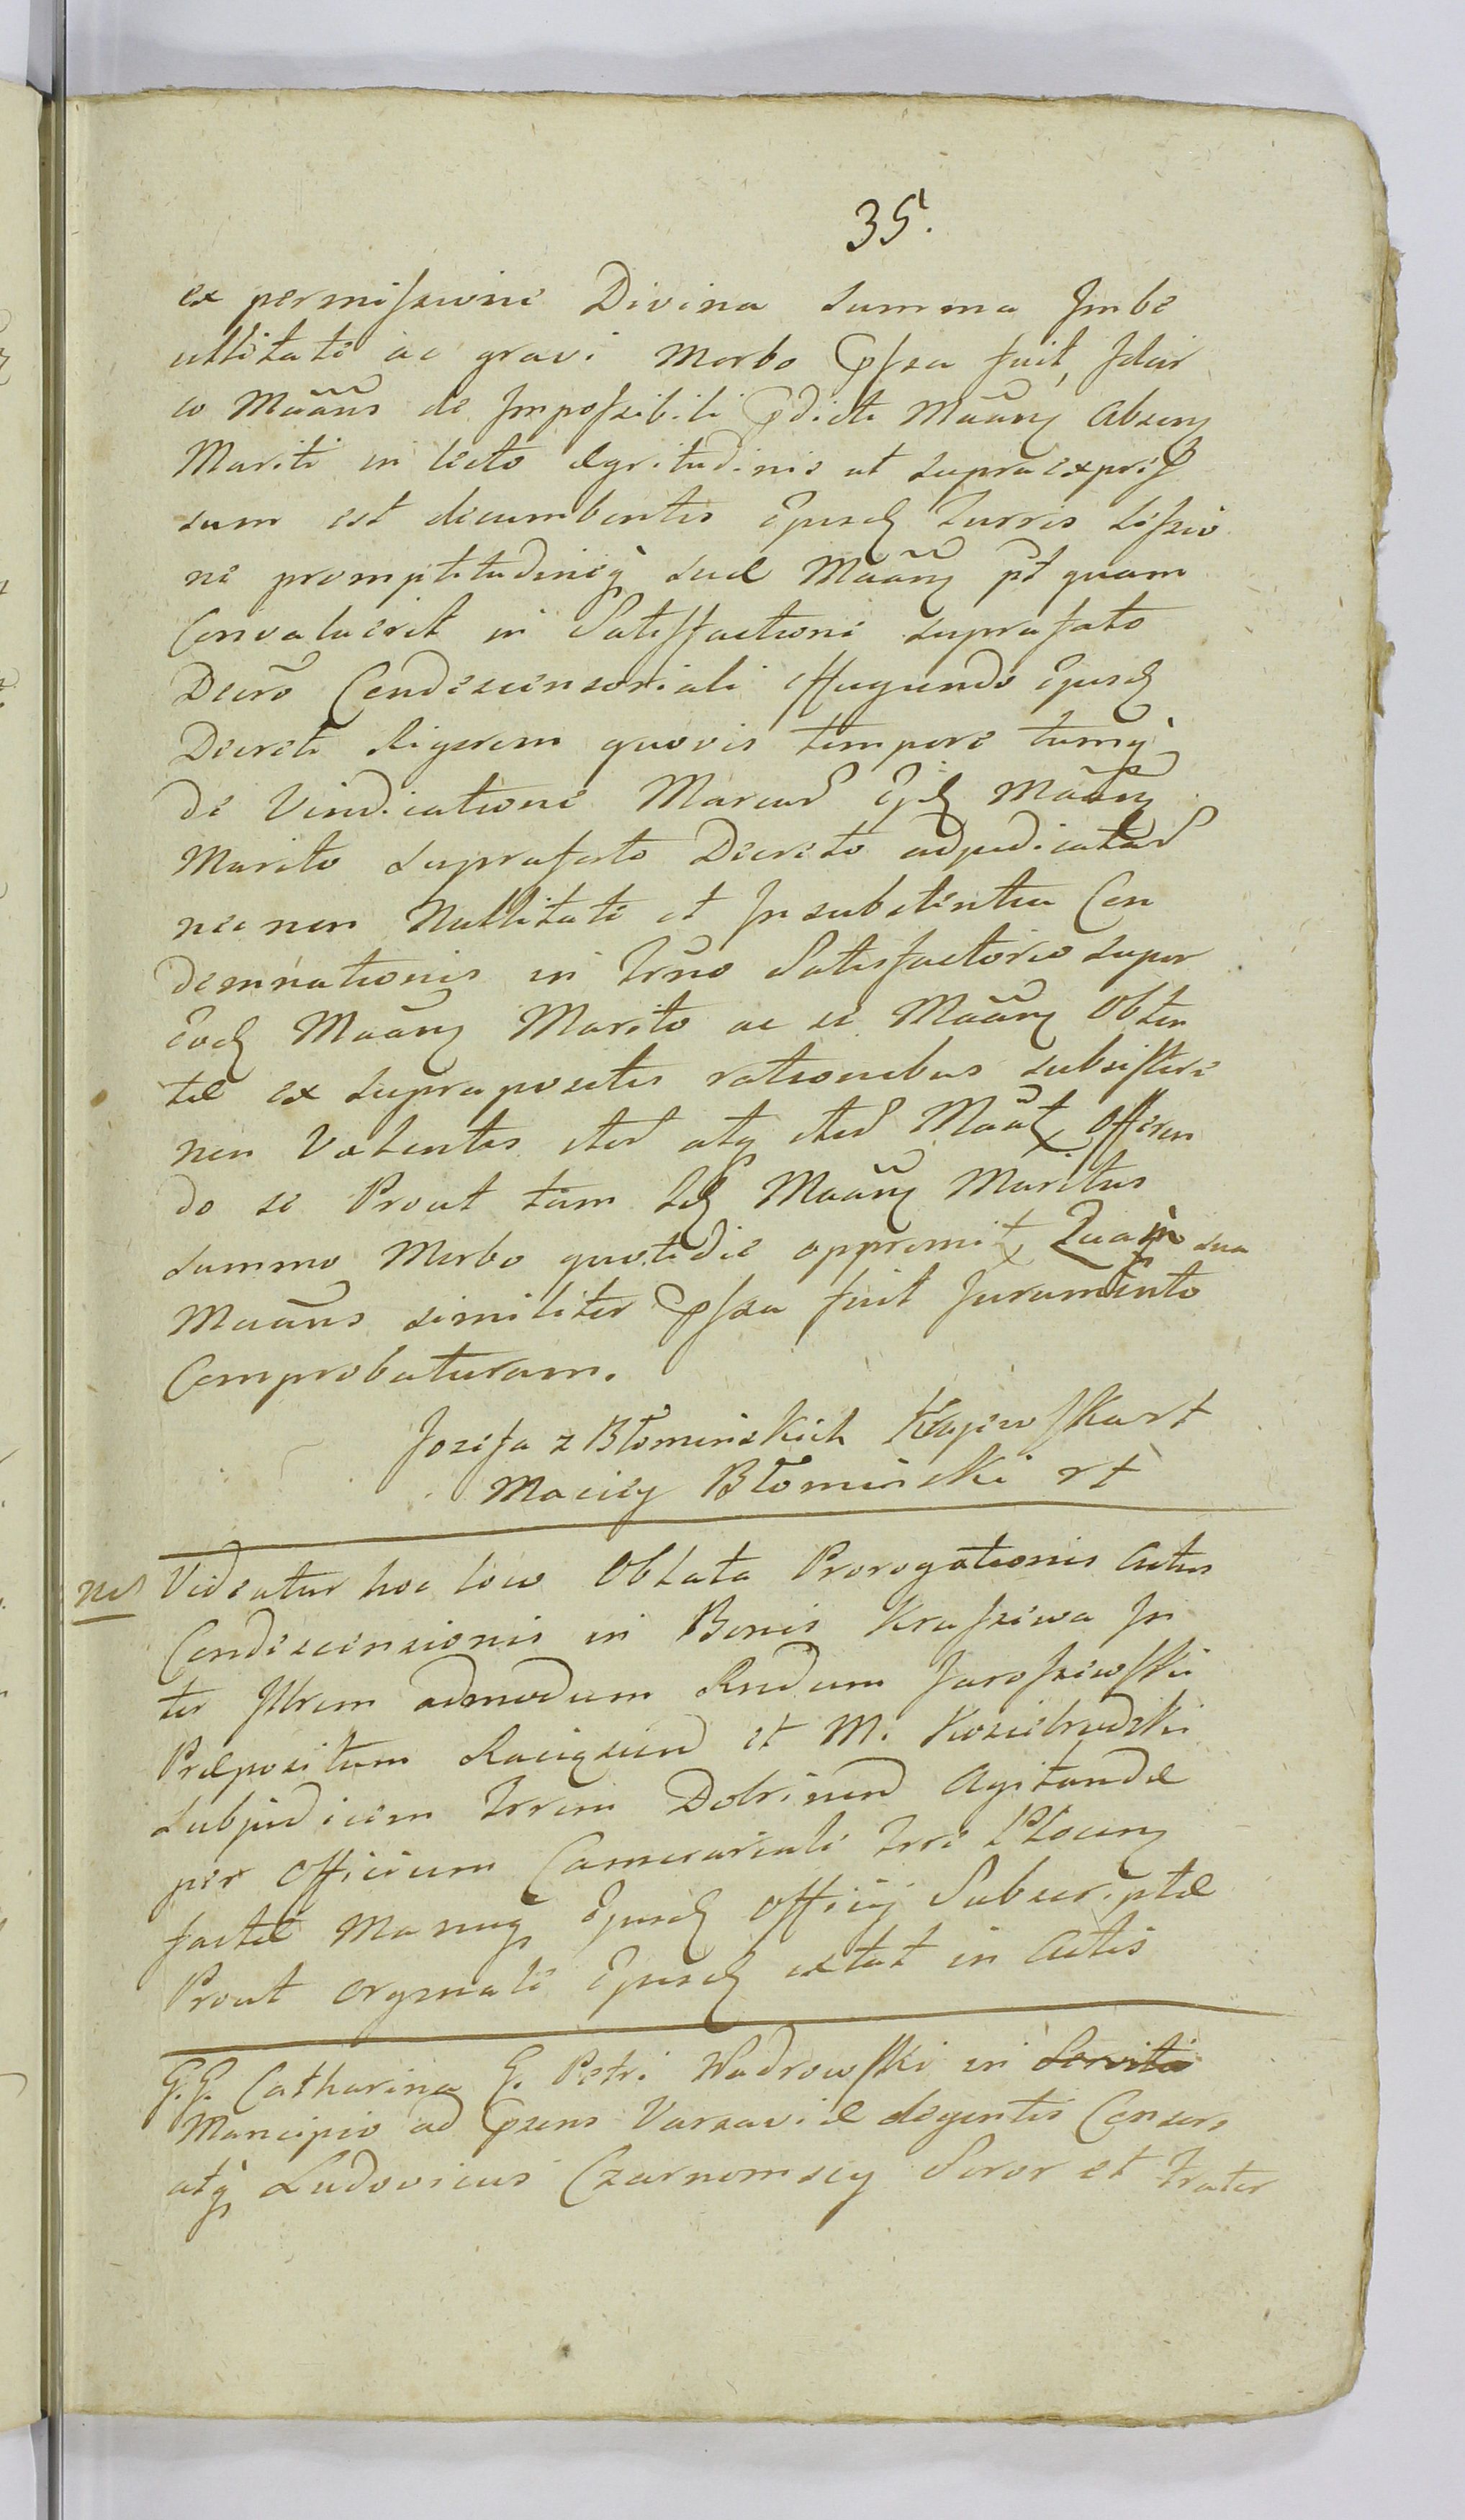 35.
ex permissione Divina summa Imbe
cillitate ac gravi Morbo pssa fuit, Idcir
co Maãns de Impossibili pdicti Maãns absens
Mariti in lecto ægritudinis ut supra expres
sum est decumbentis Ejusd Turris sessio
ne promptitudineq suæ Maãns pt quam
Convaluerit in Satisfactione suprafato
Decro Condescensoriali effugiendo Ejusd
Decreti Rigorem quovis tempore tumq
de Vindicatione Marcar Ejd Maãns
Marito suprafato Decreto adjudicatar
nec non Nullitate et Insubstentia Con
demnationis in Trno Satisfactorio super
Eod Maãns Marito ac se Maãns Obten
tæ ex supra positis rationibus subsistere
non Valentis iter atq iter Maãt offeren
do se Prout tam Id Maãns Maritus
summo Morbo quotidie opprimit Quam sua
Maãns similiter pssa fuit Juramento
Comprobaturam.
Jozefa z Błomińskich Kajewska rt
Maciey Błominski rt
NB Videatur hoc loco Oblata Prorogationis Actus
Condescensionis in Bonis Krassewa In
ter Illrem admodum Rndum Jarossewski
Præpositum Raciązien et M. Kosiebrodzki
Subjudicem Trrem Dobrinen Agitandæ
per Officium Camerariale Trre Płocens
factæ Manuq Ejusd Officij Subscriptæ
Prout orginale Ejusd extat in Actis
G.G. Catharina G. Petri Wadrowski in Servitio
Mancipio ad psens Varsaviæ degentis Consors
atq Ludovicus Czarnomscy Soror et Frater